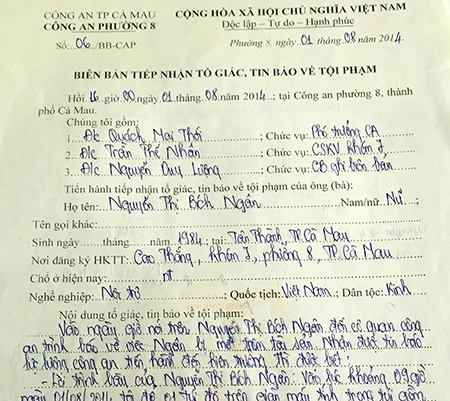 CÔNG AN TP CÀ MAU
CÔNG AN PHƯỜNG 8
CỘNG HÒA XÃ HỘI CHỦ NGHĨA VIỆT NAM
Độc lập – Tự do – Hạnh phúc
Số: 06 /BB-CAP
Phường 8, ngày 01 tháng 08 năm 2014
BIÊN BẢN TIẾP NHẬN TỐ GIÁC, TIN BÁO VỀ TỘI PHẠM
Hồi 16 giờ 00 ngày 01 tháng 08 năm 2014; tại Công an phường 8, thành
phố Cà Mau.
Chúng tôi gồm:
1. Đ/c Quách Mai Thới; Chức vụ: Phó trưởng CA
2. Đ/c Trần Thế Nhân; Chức vụ: CSKV khóm
3. Đ/c Nguyễn Duy Lượng; Chức vụ: CB ghi biên bản
Tiến hành tiếp nhận tố giác, tin báo về tội phạm của ông (bà):
Họ tên: Nguyễn Thị Bích Ngân Nam/nữ: Nữ
Tên gọi khác:
Sinh ngày tháng năm 1984; tại: Tân Thành, TP. Cà Mau
Nơi đăng ký HKTT: Cao Thắng, khóm, phường 8, TP. Cà Mau
Chỗ ở hiện nay: nt
Nghề nghiệp: Nội trợ; Quốc tịch: Việt Nam; Dân tộc: Kinh
Nội dung tố giác, tin báo về tội phạm:
Vào ngày giờ nói trên Nguyễn Thị Bích Ngân đến cơ quan công
an trình báo về việc Ngân bị mất trộm tài sản. Nhận được tin báo
lực lượng công an tiến hành đến hiện trường thì được biết:
- Lời trình bày của Nguyễn Thị Bích Ngân: Vào lúc khoảng 09 giờ
ngày 01/08/2014